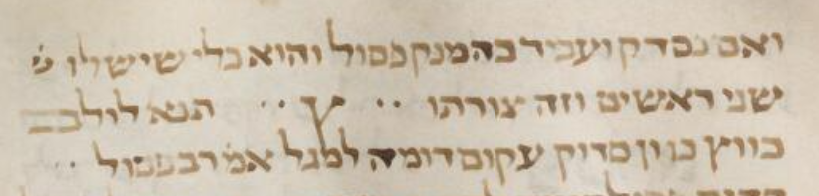 ואם נסדק ועביד כהמנק פסול והוא כלי שיש לו ש
שני ראשים וזה צורתו ·· ץ ·· תנא לולב
כווץ כנוין סדוק עקום דומה למגל אמ׳ רבא פסול ··